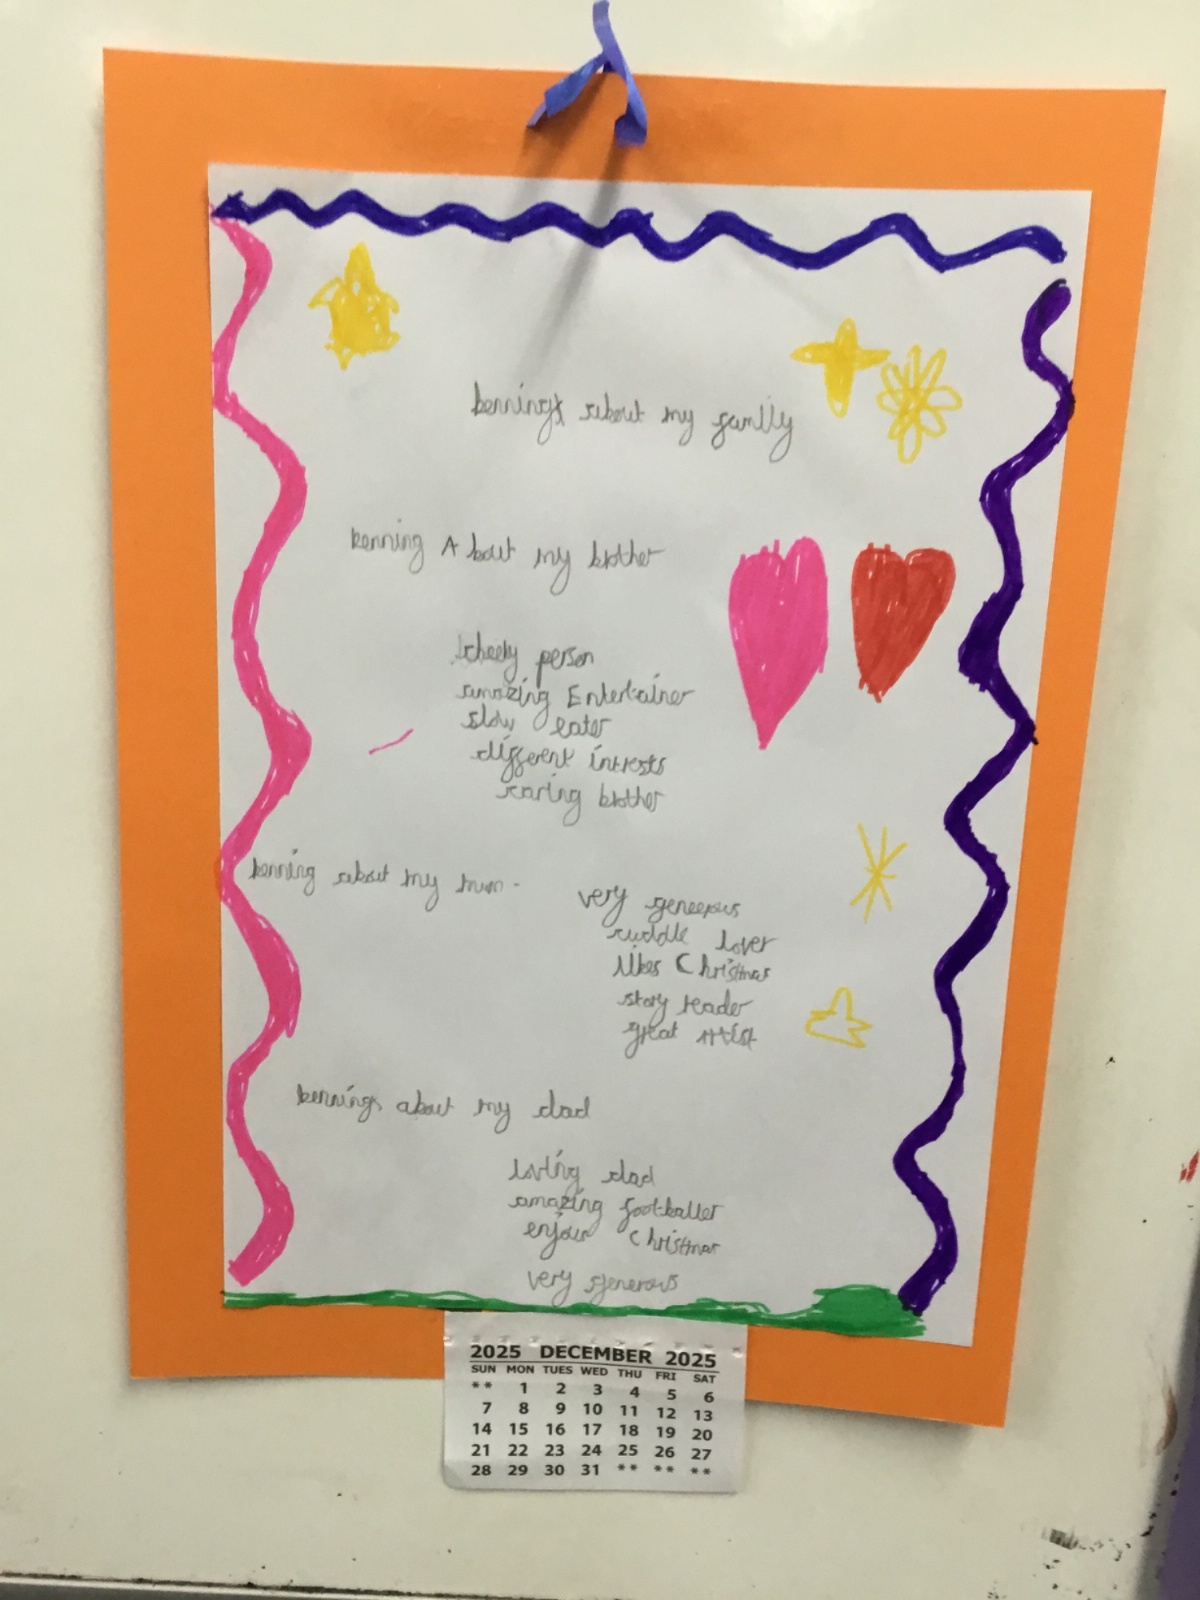 kennings about my family
kenning About my brother
cheeky person
amazing Entertainer
slow eater
different intrests
caring brother
kenning about my mum -
very geneerus
cuddle lover
likes Christmas
story reader
great artist
kennings about my dad
loving dad
amazing footballer
enjoys Christmas
very generous
2025 DECEMBER 2025
SUN MON TUES WED THU FRI SAT
** 1 2 3 4 5 6
7 8 9 10 11 12 13
14 15 16 17 18 19 20
21 22 23 24 25 26 27
28 29 30 31 ** ** **